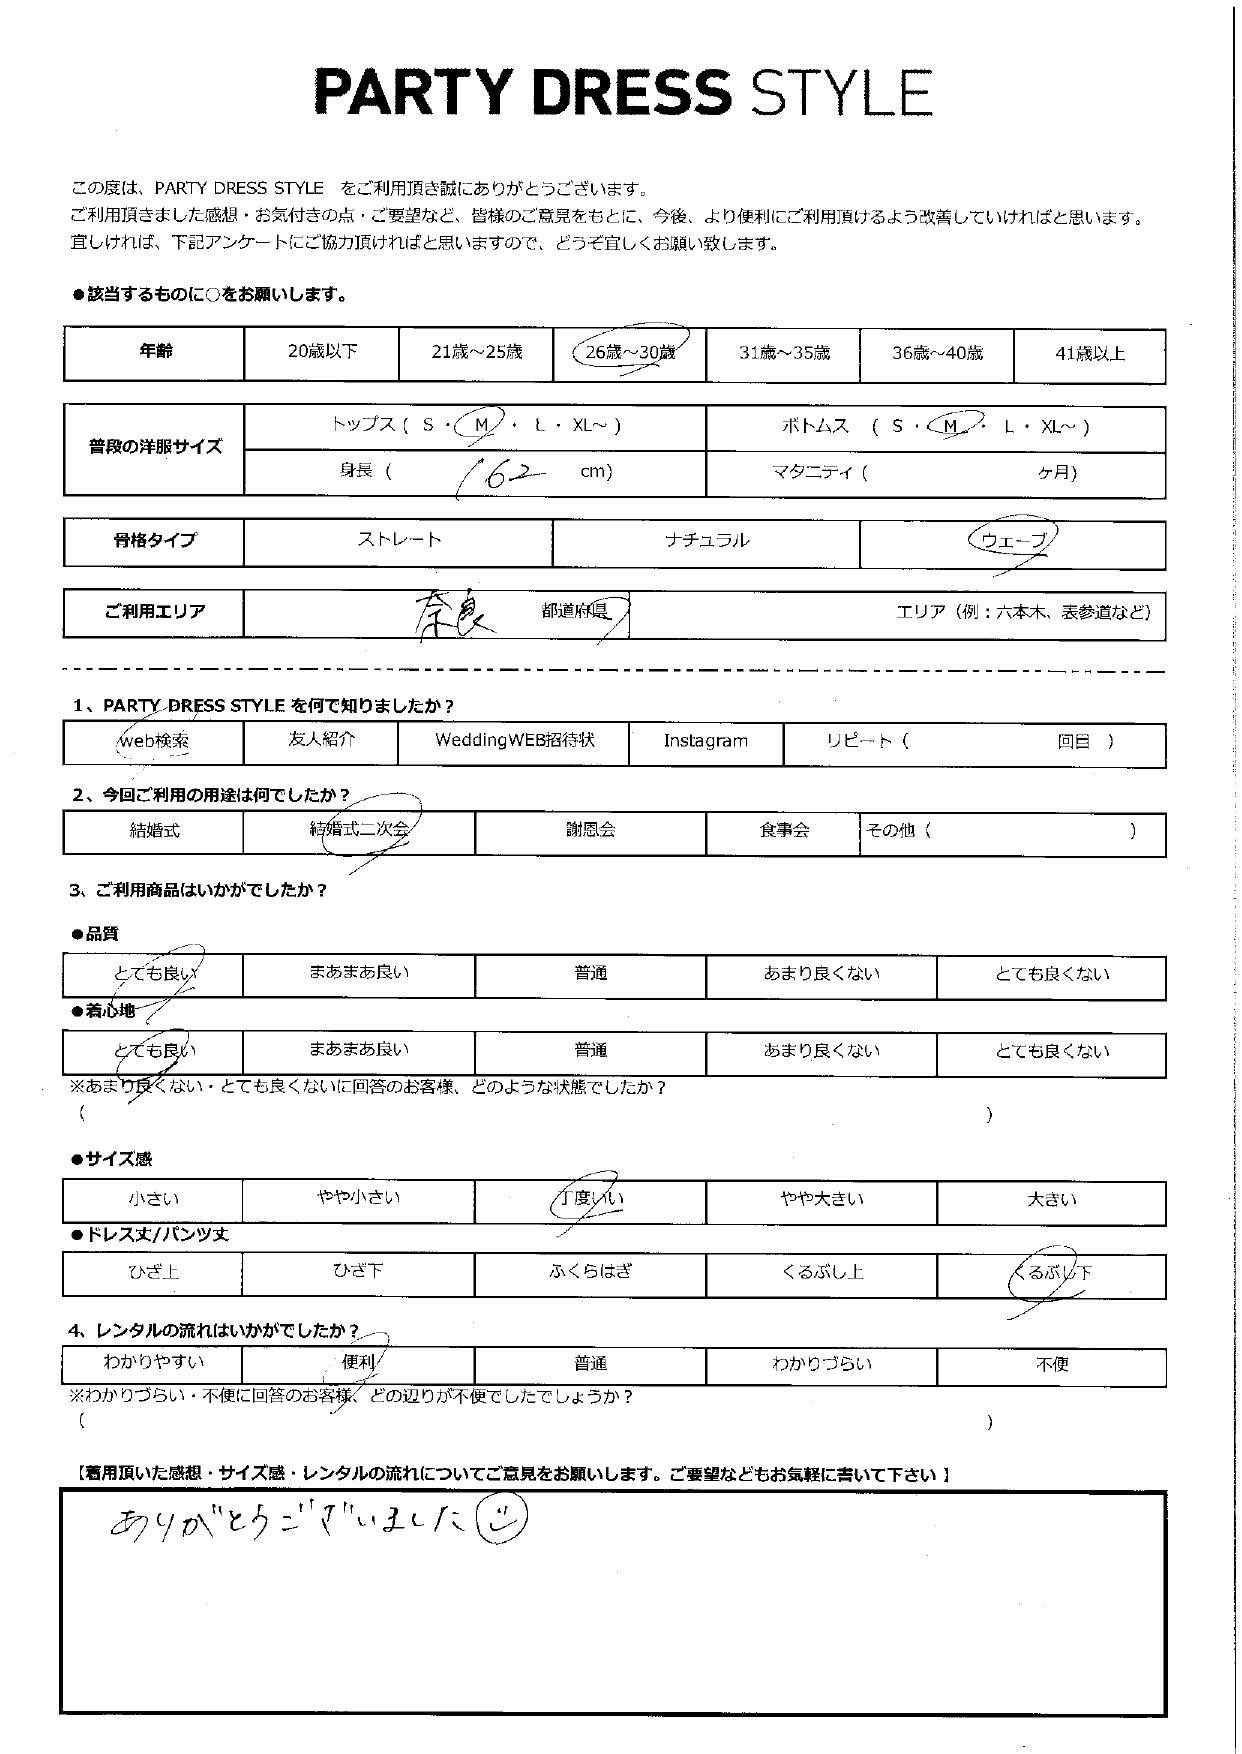 PARTY DRESS STYLE
この度は、PARTY DRESS STYLE をご利用頂き誠にありがとうございます。
ご利用頂きました感想・お気付きの点・ご要望など、皆様のご意見をもとに、今後、より便利にご利用頂けるよう改善していければと思います。
宜しければ、下記アンケートにご協力頂ければと思いますので、どうぞ宜しくお願い致します。
●該当するものに○をお願いします。
年齢 20歳以下 21歳～25歳 26歳～30歳 31歳～35歳 36歳～40歳 41歳以上
普段の洋服サイズ トップス ( S ・ M ・ L ・ XL～ ) ボトムス ( S ・ M ・ L ・ XL～ )
身長 ( 162 cm) マタニティ ( ヶ月)
骨格タイプ ストレート ナチュラル ウェーブ
ご利用エリア 奈良 都道府県 エリア (例：六本木、表参道など)
1、PARTY DRESS STYLE を何で知りましたか？
web検索 友人紹介 WeddingWEB招待状 Instagram リピート ( 回目 )
2、今回ご利用の用途は何でしたか？
結婚式 結婚式二次会 謝恩会 食事会 その他 ( )
3、ご利用商品はいかがでしたか？
●品質
とても良い まあまあ良い 普通 あまり良くない とても良くない
●着心地
とても良い まあまあ良い 普通 あまり良くない とても良くない
※あまり良くない・とても良くないに回答のお客様、どのような状態でしたか？
( )
●サイズ感
小さい やや小さい 丁度いい やや大きい 大きい
●ドレス丈/パンツ丈
ひざ上 ひざ下 ふくらはぎ くるぶし上 くるぶし下
4、レンタルの流れはいかがでしたか？
わかりやすい 便利 普通 わかりづらい 不便
※わかりづらい・不便に回答のお客様、どの辺りが不便でしたでしょうか？
( )
【着用頂いた感想・サイズ感・レンタルの流れについてご意見をお願いします。ご要望などもお気軽に書いて下さい 】
ありがとうございました